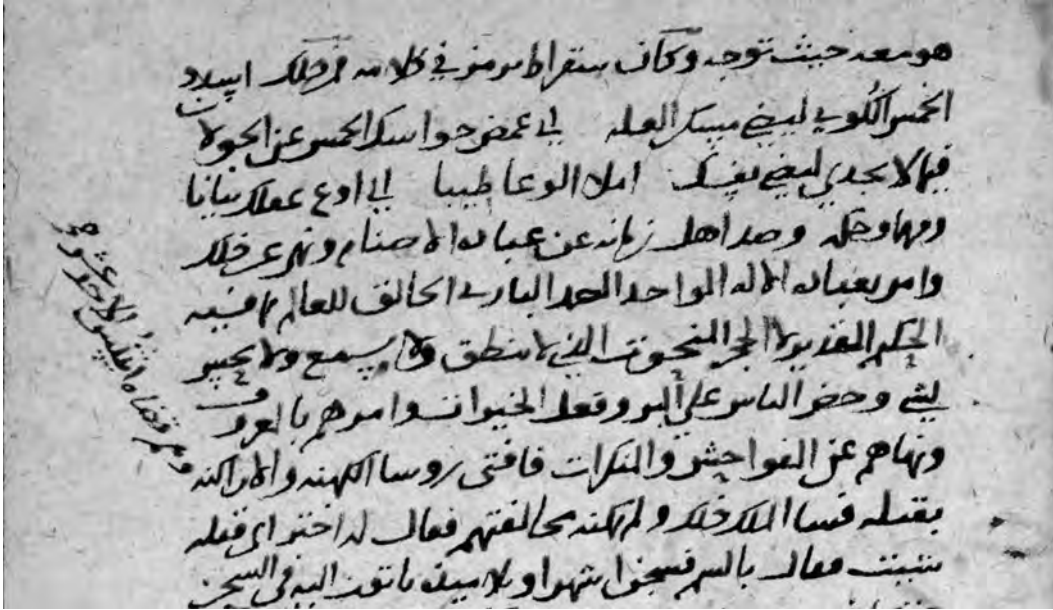 هو معه حيث توجه وكان سقراط يرمز في كلامه فمن ذلك اسدد
الخمس الكوى ليضي مسكن العله اي غمض حواسك الخمس عن الجولان
فيما لا يجدي لتضي نفسك املا الوعا طيبا اي اوع عقلك بيانا
وفهما وحكمه وصد اهل زمانه عن عباده الاصنام ونهى عن ذلك
وامر بعباده الاله الواحد الصمد الباري الخالق للعالم بما فيه
الحكيم القدير لا الحجر المنحوت الذي لا ينطق ولا يسمع ولا يحس
بشي وحض الناس على البر وفعل الخيرات وامرهم بالمعروف
ونهاهم عن الفواحش والمنكرات فافتى روسا الكهنه والاراكنه
بقتله فسا الملك ذلك ولم يمكنه مخالفتهم فقال له اختر اي قتله
شيت فقال بالسم فسجن شهرا وتلاميذه ياتون اليه في السجن
وهم قضاه اثينس الاحد عشر